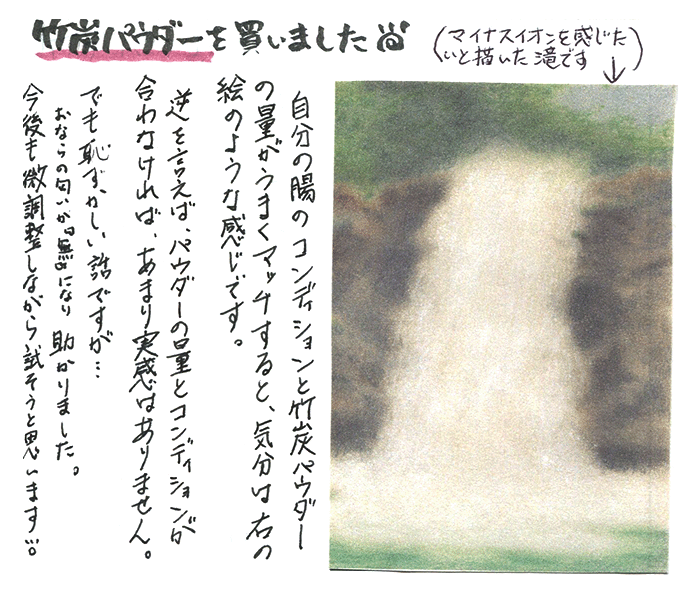 竹炭パウダーを買いました
(マイナスイオンを感じた
いと描いた滝です)
自分の腸のコンディションと竹炭パウダー
の量がうまくマッチすると、気分は右の
絵のような感じです。
逆を言えば、パウダーの量とコンディションが
合わなければ、あまり実感はありません。
でも恥ずかしい話ですが…
おならの匂いが「無」になり助かりました。
今後も微調整しながら、試そうと思います。